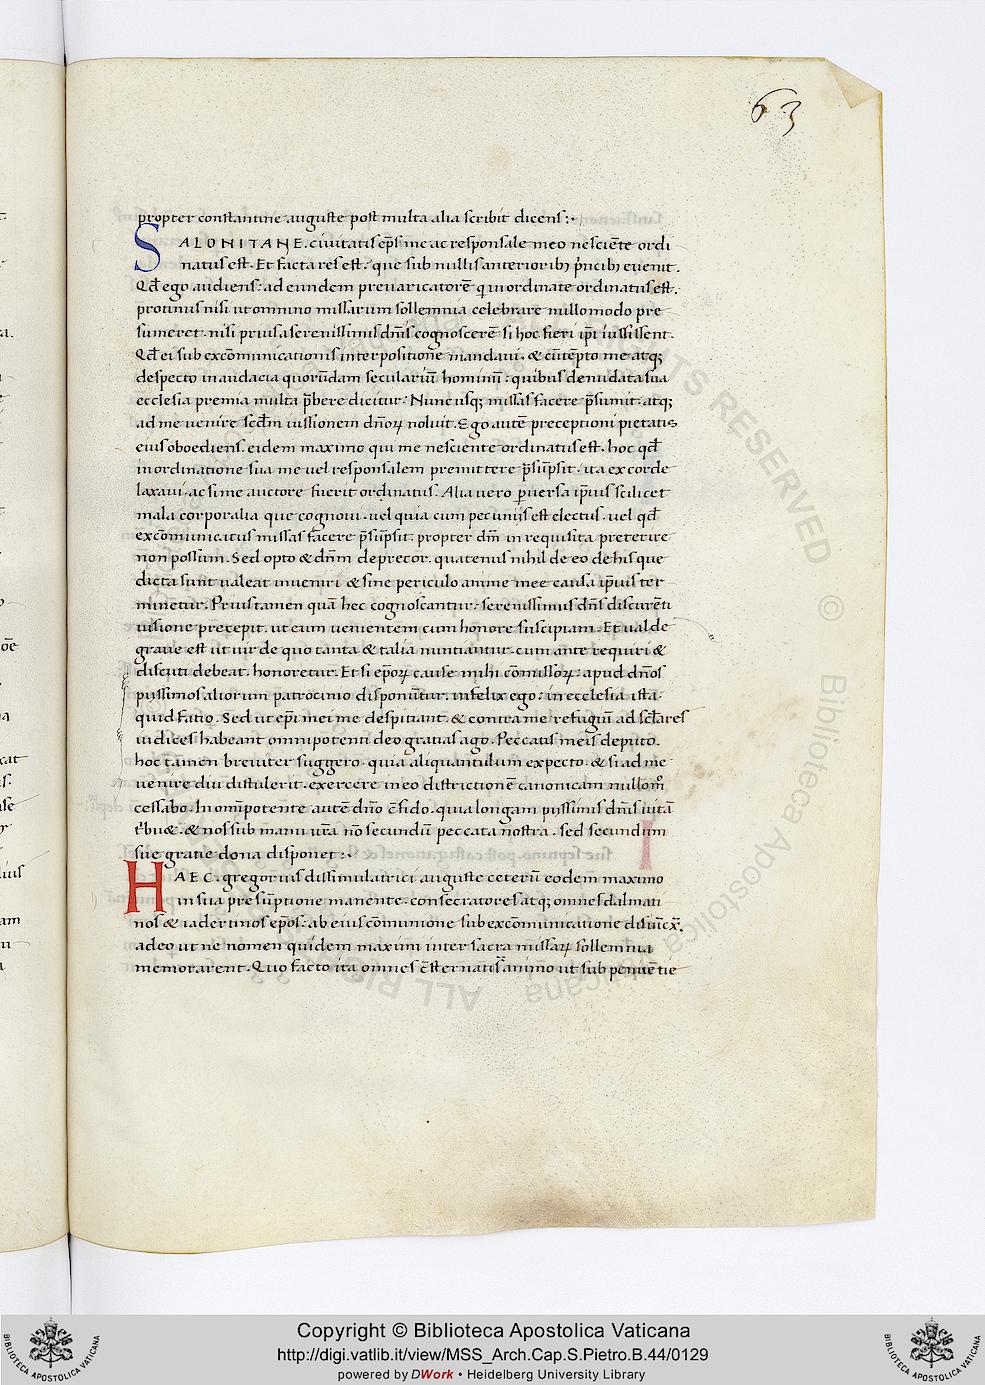 63
propter constantine auguste post multa alia scribit dicens:·
SALONITANE. civitatis ep̄s me ac responsale meo nesciēte ordi
natus est. Et facta res est. que sub nullis anterioribꝫ p̄ncibꝫ evenit.
Qd̄ ego audiens: ad eundem prevaricatorē qui inordinate ordinatus est.
protinus nisi ut omnino missarum sollemnia celebrare nullo modo pre
sumeret. nisi prius a serenissimis dn̄is cognoscerē si hoc fieri ip̄i iussissent.
Qd̄ ei sub excōmunicationis interpositione mandavi. & cūtēpto me atqꝫ
despecto in audacia quorūdam seculariū hominū: quibus denudata sua
ecclesia premia multa p̄bere dicitur. Nunc usqꝫ missas facere p̄sumit. atqꝫ
ad me venire scd̄m iussionem dn̄oꝝ noluit. Ego autē preceptioni pietatis
eius oboediens. eidem maximo qui me nesciente ordinatus est. hoc qd̄
in ordinatione sua me vel responsalem premittere p̄sūpsit. ita ex corde
laxavi. ac si me auctore fuerit ordinatus. Alia vero ꝑversa ip̄ius scilicet
mala corporalia que cognovi. vel quia cum pecuniis est electus. vel qd̄
excōmunicatus missas facere p̄sūpsit. propter dm̄ in requisita preterire
non possum. Sed opto & dn̄m deprecor. quatenus nihil de eo de his que
dicta sunt valeat inveniri & sine periculo anime mee causa ip̄ius ter
minetur. Prius tamen quā hec cognoscantur: serenissimus dn̄s discurēti
iussione precepit. ut eum venientem cum honore suscipiam. Et valde
grave est ut vir de quo tanta & talia nuntiantur. cum ante requiri &
discuti debeat. honoretur. Et si ep̄oꝝ cause mihi cōmissoꝝ. apud dn̄os
piissimos aliorum patrocinio disponūtur. infelix ego: in ecclesia ista.
quid facio. Sed ut ep̄i mei me despiciant. & contra me refugiū ad sc̄lares
iudices habeant omnipotenti deo gratias ago. Peccatis meis deputo.
hoc tamen breviter suggero. quia aliquantulum expecto. & si ad me
venire diu distulerit. exercere in eo districtionē canonicam nullom̊
cessabo. In omp̄otente autē dn̄o c̄fido. quia longam piissimis dn̄is vitā
t̄bu&. & nos sub manu vr̄a nō secundū peccata nostra. sed secundum
sue gratie dona disponet:·
HAEC. gregorius dissimulatrici auguste ceterū eodem maximo
in sua presūptione manente. consecratores atqꝫ omnes dalmati
nos & iadertinos ep̄os: ab eius cōmunione sub excōmunicatione disiūcx̄.
adeo ut ne nomen quidem maximi inter sacra missaꝝ sollemnia
memorarent. Quo facto ita omnes c̄sternati s̄ animo ut sub penitētie
Copyright © Biblioteca Apostolica Vaticana
http://digi.vatlib.it/view/MSS_Arch.Cap.S.Pietro.B.44/0129
powered by DWork • Heidelberg University Library
BIBLIOTECA APOSTOLICA VATICANA
BIBLIOTECA APOSTOLICA VATICANA